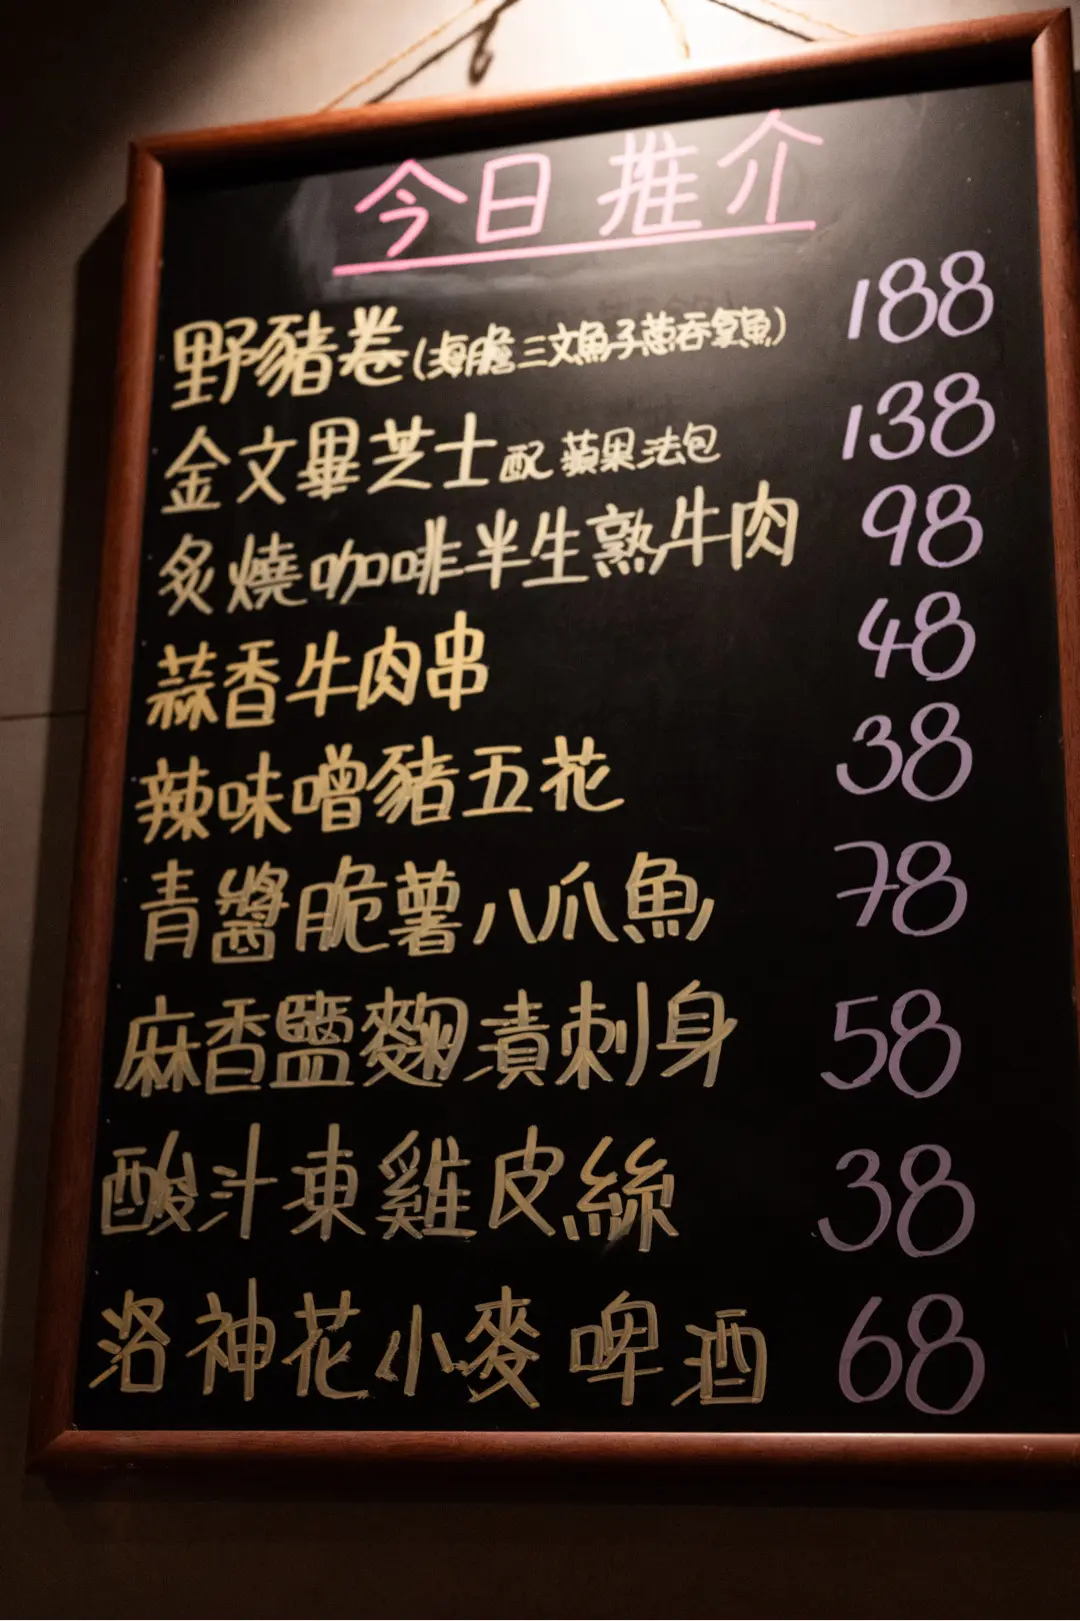 今日推介
野豬卷(海膽三文魚子蔥吞拿魚) 188
金文畢芝士配蘋果法包 138
炙燒咖啡半生熟牛肉 98
蒜香牛肉串 48
辣味噌豬五花 38
青醬脆薯八爪魚 78
麻香鹽麴漬刺身 58
酸汁凍雞皮絲 38
洛神花小麥啤酒 68